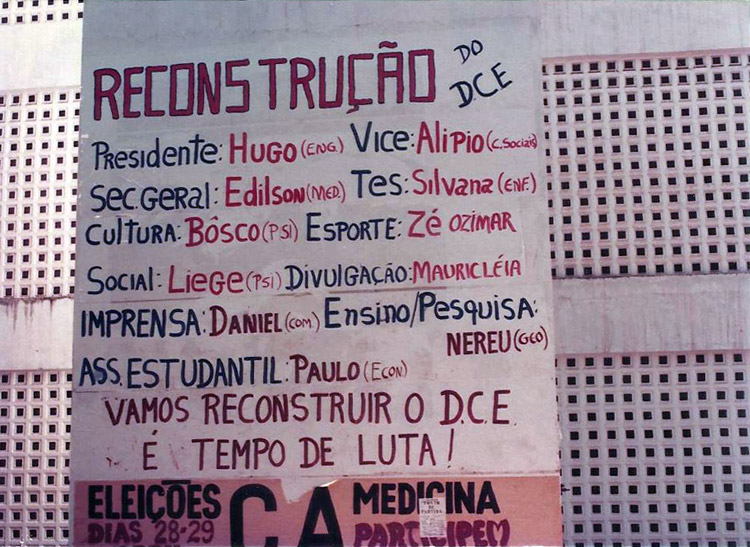 RECONSTRUÇÃO DO DCE
Presidente: HUGO (ENG.) Vice: Alipio (C. Sociais)
SEC. GERAL: Edilson (MED.) Tes: Silvana (ENF.)
CULTURA: BÔSCO (PSI) ESPORTE: Zé OZIMAR
Social: LIEGE (PSI) DIVULGAÇÃO: MAURICLÉIA
IMPRENSA: DANIEL (COM.) Ensino/Pesquisa:
NEREU (GEO)
ASS. ESTUDANTIL: PAULO (ECON)
VAMOS RECONSTRUIR O D.C.E.
É TEMPO DE LUTA!
ELEIÇÕES CA MEDICINA
DIAS 28-29 PARTICIPEM